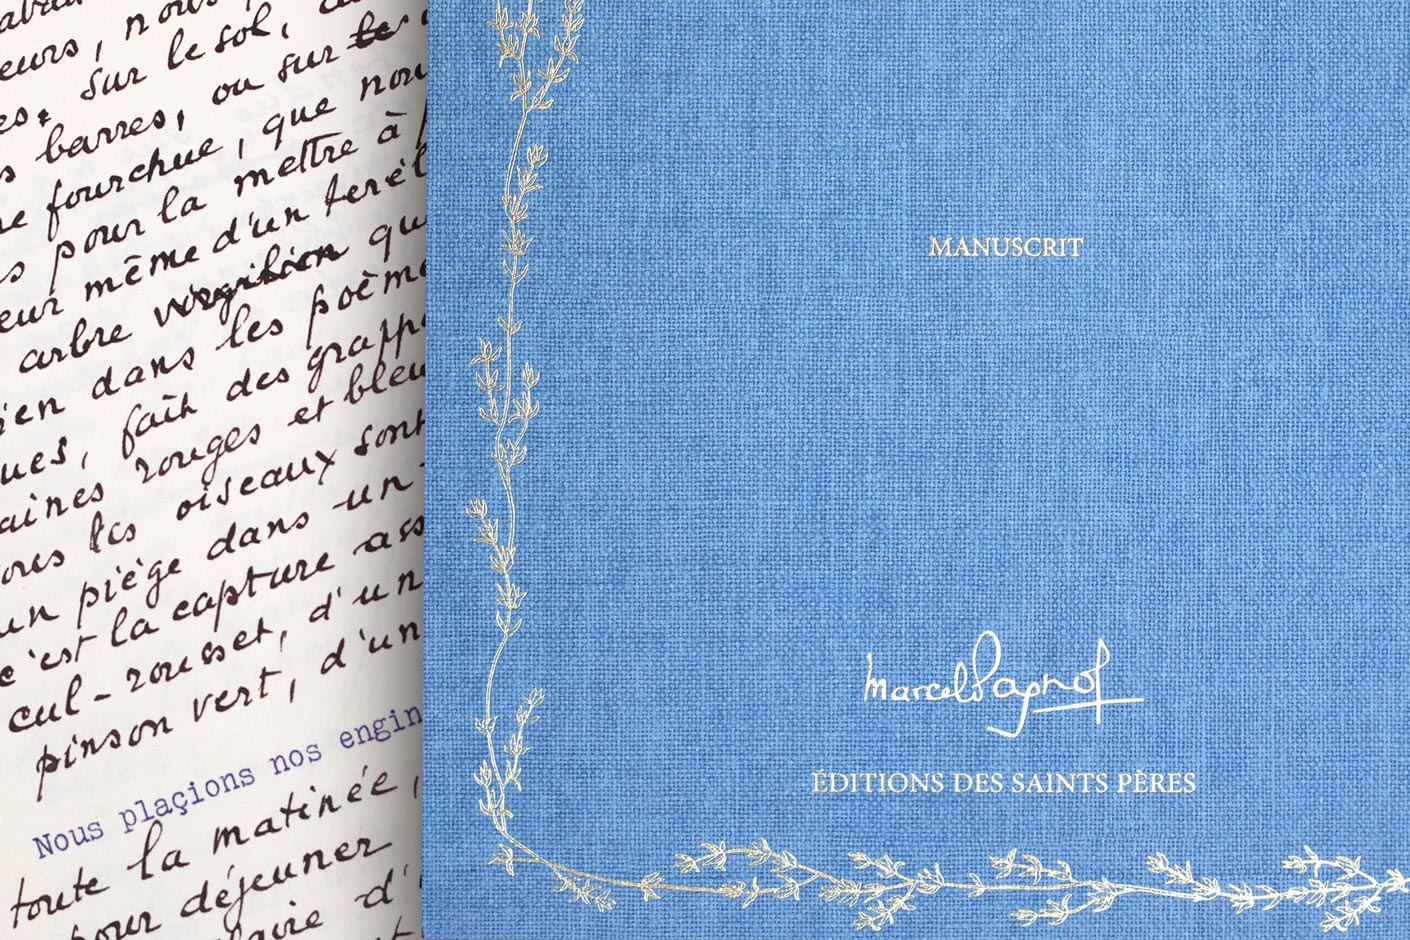 eurs, nous
es, sur le sol,
s barres, ou sur le
e fourchue, que nou
s pour la mettre à
eur même d'un téré
arbre virgilien qu
ien dans les poème
ues, fait des grapp
aines rouges et bleu
les oiseaux sont
un piège dans un
c'est la capture ass
cul-rousset, d'un
pinson vert, d'un
Nous plaçions nos engin
toute la matinée,
pour déjeuner
d'
MANUSCRIT
Marcel Pagnol
ÉDITIONS DES SAINTS PÈRES